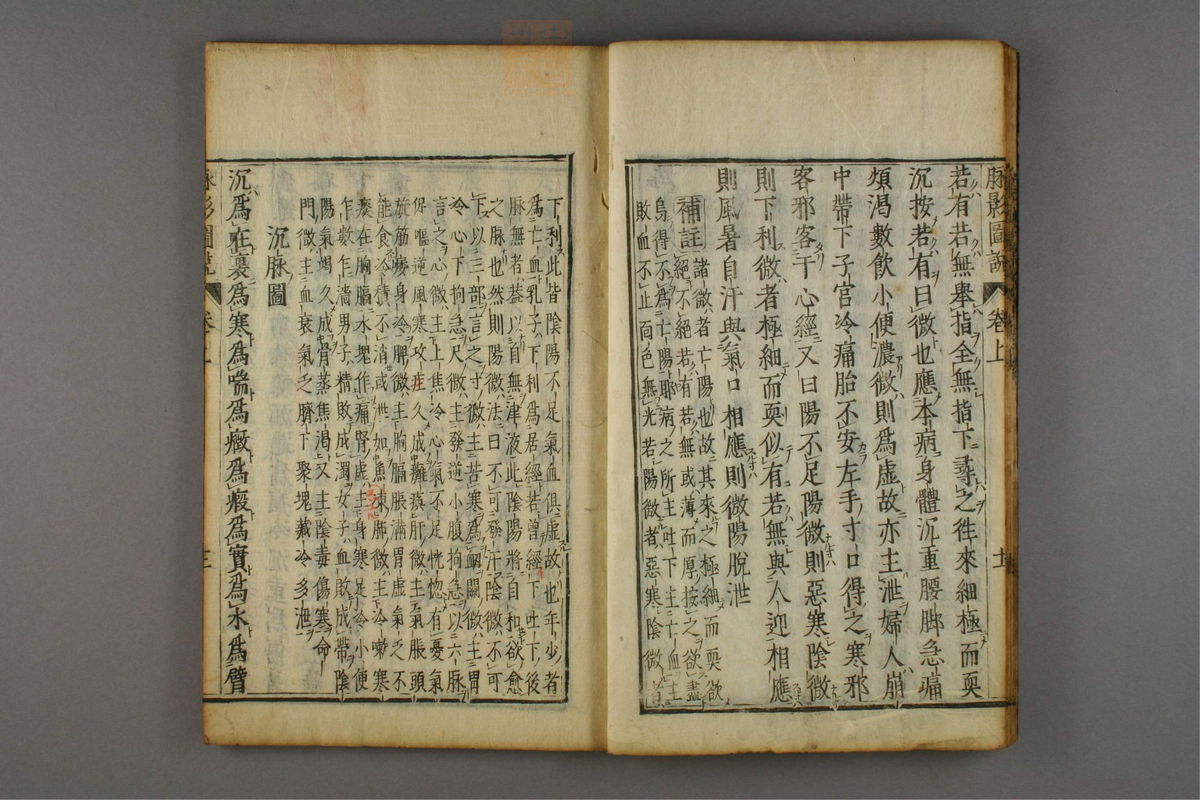 脉影圖說 卷上
若有若無舉指全無指下尋之往來細極而耎
沉按若有曰微也應本病身體沉重腰脚急痛
煩渴數飲小便濃微則爲虛故亦主泄婦人崩
中帶下子宮冷痛胎不安左手寸口得之寒邪
客邪客干心經又曰陽不足陽微則惡寒陰微
則下利微者極細而耎似有若無與人迎相應
則風暑自汗與氣口相應則微陽脫泄
補註
諸微者亡陽也故其來之極細而耎欲
絕不絕若有若無或薄而厚按之欲盡
烏得不爲亡陽耶病之所主吐下主亡血主
敗血不止面色無光若陽微者惡寒陰微者
下利此皆陰陽不足氣血俱虛故也年少者
爲亡血乳子下利爲居經若曾經下吐下後
脉無者葢以自無津液此陰陽將自和欲愈
之脉也然則陽微法曰不可發汗陰微不可
下以三部言之寸微主苦寒爲衄關微主胃
冷心下拘急尺微主發逆小腹拘急以六脉
言之心微上焦冷心氣不足恍惚有憂氣
促嘔逆風寒攻注久成癱瘓肝微主氣脹頭
旋筋痿身冷脾微主胸膈脹滿胃虛氣乏不
能食冷積不消或泄如魚凍肺微主冷嗽寒
痰在胸膈水塊作痛腎虛主身寒足冷小便
乍數乍濇男子精敗成濁女子血敗成帶陰
陽氣竭久成骨蒸焦渴又主陰毒傷寒命
門微主血衰氣乏臍下聚塊藏冷多泄
沉脉圖
沉爲在裏爲寒爲喘爲癥爲瘕爲實爲水爲臂